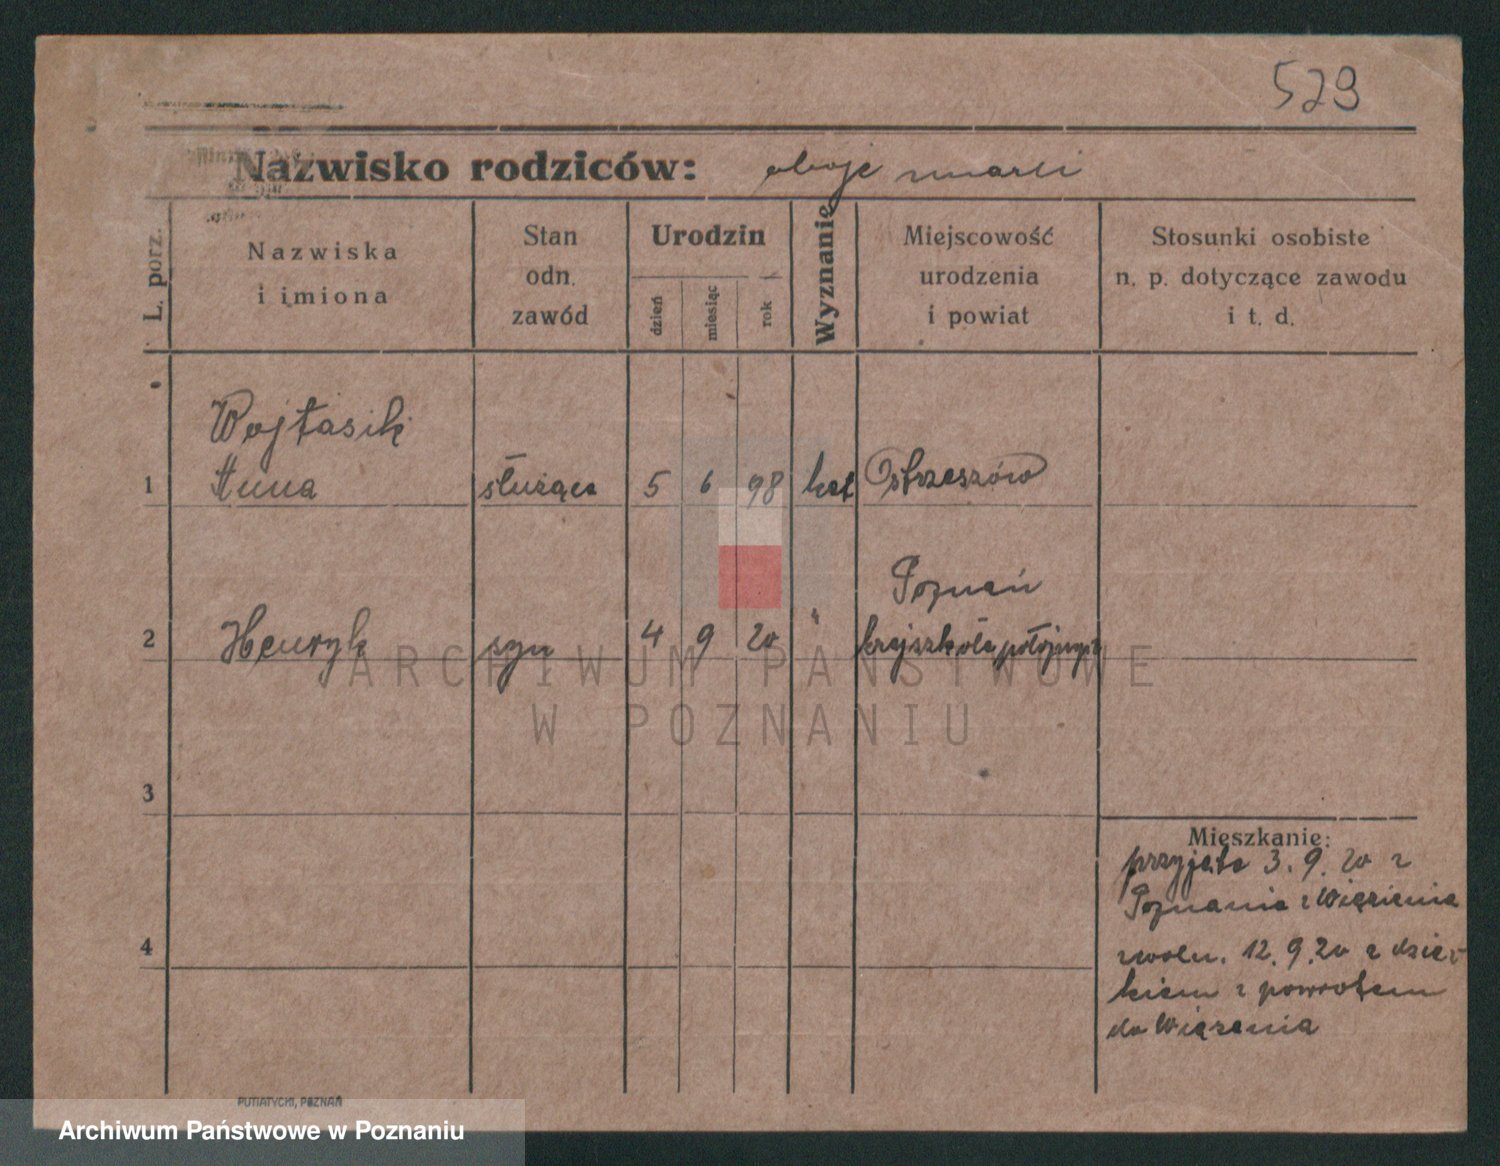 529
Nazwisko rodziców: oboje zmarli
L. porz.
Nazwiska
i imiona
Stan
odn.
zawód
Urodzin
dzień
miesiąc
rok
Wyznanie
Miejscowość
urodzenia
i powiat
Stosunki osobiste
n. p. dotyczące zawodu
i t. d.
Wojtasik
1 Anna służąca 5 6 98 kat Ostrzeszów
Poznań
2 Henryk syn 4 9 20 "
ARCHIWUM PAŃSTWOWE
W POZNANIU
3
Mieszkanie:
przyjęta 3. 9. 20 z
Poznania z Więzienia
4 zwoln. 12. 9. 20 z dziec-
kiem z powrotem
do Więzenia
PUTIATYCKI, POZNAŃ
Archiwum Państwowe w Poznaniu